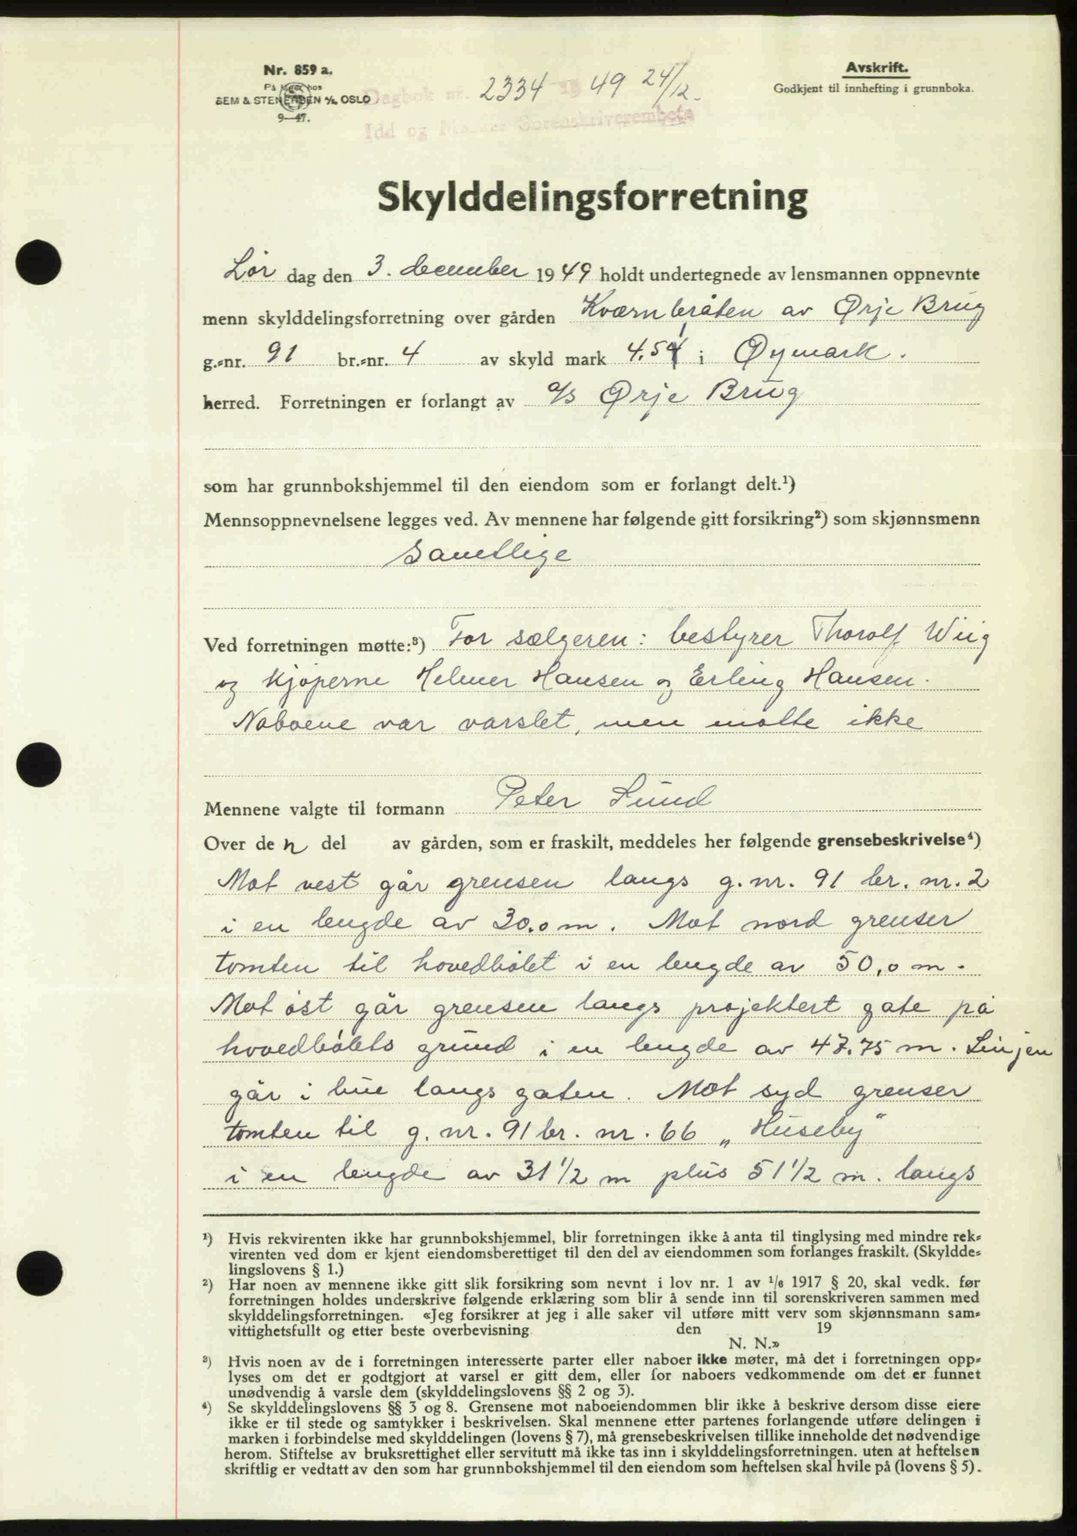 Nr. 859 a.
På lager hos
SEM & STENERSEN A/S, OSLO
9—47.
Dagbok nr. 2334 - 19 49 24/12.
Idd og Marker Sorenskriverembete
Avskrift.
Godkjent til innhefting i grunnboka.
Skylddelingsforretning
Lør dag den 3. december 1949 holdt undertegnede av lensmannen oppnevnte
menn skylddelingsforretning over gården Kværnbråten av Ørje Brug
g.-nr. 91 br.-nr. 4 av skyld mark 4.54 i Øymark.
herred. Forretningen er forlangt av a/s Ørje Brug
som har grunnbokshjemmel til den eiendom som er forlangt delt.¹)
Mennsoppnevnelsene legges ved. Av mennene har følgende gitt forsikring²) som skjønnsmenn
Samtlige
Ved forretningen møtte:³) For sælgeren: bestyrer Thorolf Wiig
og kjøperne Helmer Hansen og Erling Hansen.
Naboene var varslet, men møtte ikke
Mennene valgte til formann Peter Lund
Over den del av gården, som er fraskilt, meddeles her følgende grensebeskrivelse⁴)
Mot vest går grensen langs g.nr. 91 br. nr. 2
i en lengde av 30.0 m. Mot nord grenser
tomten til hovedbølet i en lengde av 50,0 m.
Mot øst går grensen langs projektert gate på
hovedbølets grund i en lengde av 47.75 m. Linjen
går i bue langs gaten. Mot syd grenser
tomten til g. nr. 91 br. nr. 66 „Huseby"
i en lengde av 31 1/2 m plus 51 1/2 m. langs
¹) Hvis rekvirenten ikke har grunnbokshjemmel, blir forretningen ikke å anta til tinglysing med mindre rek-
virenten ved dom er kjent eiendomsberettiget til den del av eiendommen som forlanges fraskilt. (Skyldde-
lingslovens § 1.)
²) Har noen av mennene ikke gitt slik forsikring som nevnt i lov nr. 1 av 1/6 1917 § 20, skal vedk. før
forretningen holdes underskrive følgende erklæring som blir å sende inn til sorenskriveren sammen med
skylddelingsforretningen. «Jeg forsikrer at jeg i alle saker vil utføre mitt verv som skjønnsmann sam-
vittighetsfullt og etter beste overbevisning den 19
N. N.»
³) Hvis noen av de i forretningen interesserte parter eller naboer ikke møter, må det i forretningen opp-
lyses om det er godtgjort at varsel er gitt dem, eller for naboers vedkommende om det er funnet
unødvendig å varsle dem (skylddelingslovens §§ 2 og 3).
⁴) Se skylddelingslovens §§ 3 og 8. Grensene mot naboeiendommen blir ikke å beskrive dersom disse eiere
ikke er til stede og samtykker i beskrivelsen. Skal mennene etter partenes forlangende utføre delingen i
marken i forbindelse med skylddelingen (lovens § 7), må grensebeskrivelsen tillike inneholde det nødvendige
herom. Stiftelse av bruksrettighet eller servitutt må ikke tas inn i skylddelingsforretningen, uten at heftelsen
skriftlig er vedtatt av den som har grunnbokshjemmel til den eiendom som heftelsen skal hvile på (lovens § 5).